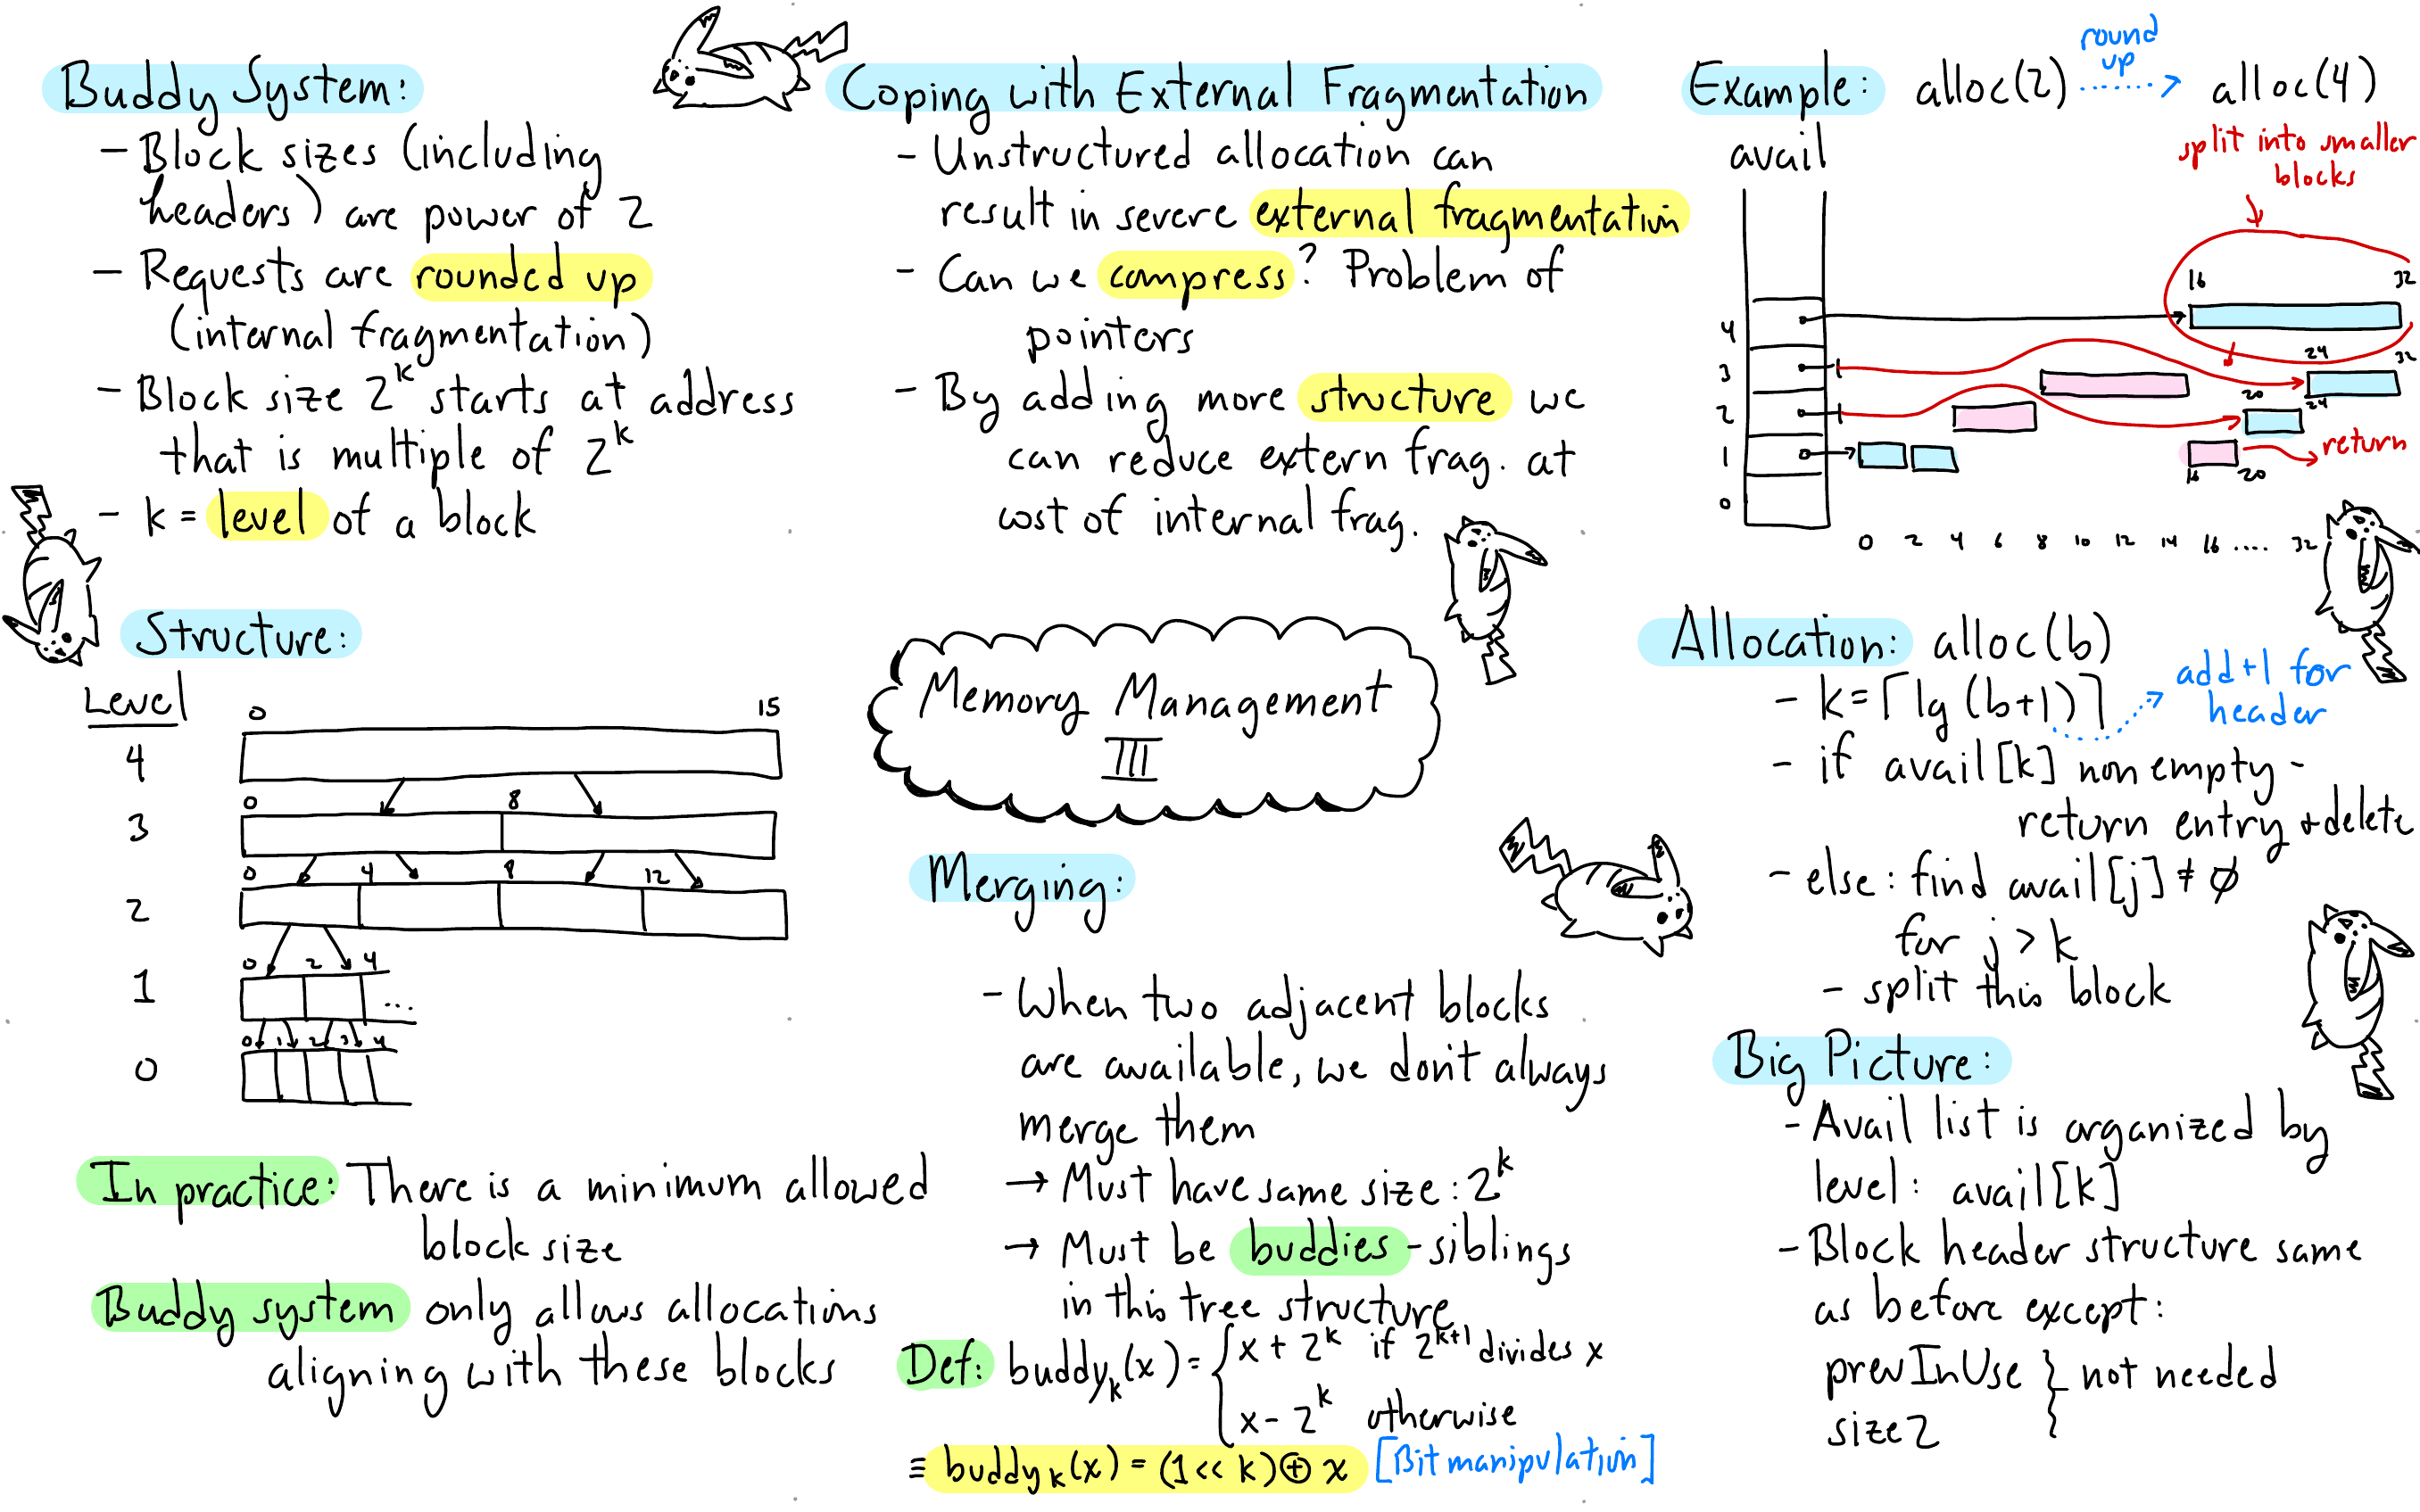 Buddy System:
- Block sizes (including
headers) are power of 2
- Requests are rounded up
(internal fragmentation)
- Block size 2^k starts at address
that is multiple of 2^k
- k = level of a block
Structure:
Level
0 15
4
0 8
3
0 4 8 12
2
0 2 4
1 ...
0 1 2 3 4
0
In practice: There is a minimum allowed
block size
Buddy system only allows allocations
aligning with these blocks
Coping with External Fragmentation
- Unstructured allocation can
result in severe external fragmentation
- Can we compress? Problem of
pointers
- By adding more structure we
can reduce extern frag. at
cost of internal frag.
Memory Management
III
Merging:
- When two adjacent blocks
are available, we don't always
merge them
→ Must have same size: 2^k
→ Must be buddies - siblings
in this tree structure
Def: buddy_k(x) = { x + 2^k if 2^{k+1} divides x
x - 2^k otherwise
≡ buddy_k(x) = (1 << k) ⊕ x [Bit manipulation]
Example: alloc(2) round up alloc(4)
avail
split into smaller
blocks
16 32
4
24 32
3
20 24
2
1
return
16 20
0
0 2 4 6 8 10 12 14 16 .... 32
Allocation: alloc(b)
- k = ⌈lg (b+1)⌉
add +1 for
header
- if avail[k] non empty -
return entry + delete
- else: find avail[j] ≠ ∅
for j > k
- split this block
Big Picture:
- Avail list is organized by
level: avail[k]
- Block header structure same
as before except:
prevInUse } not needed
size2